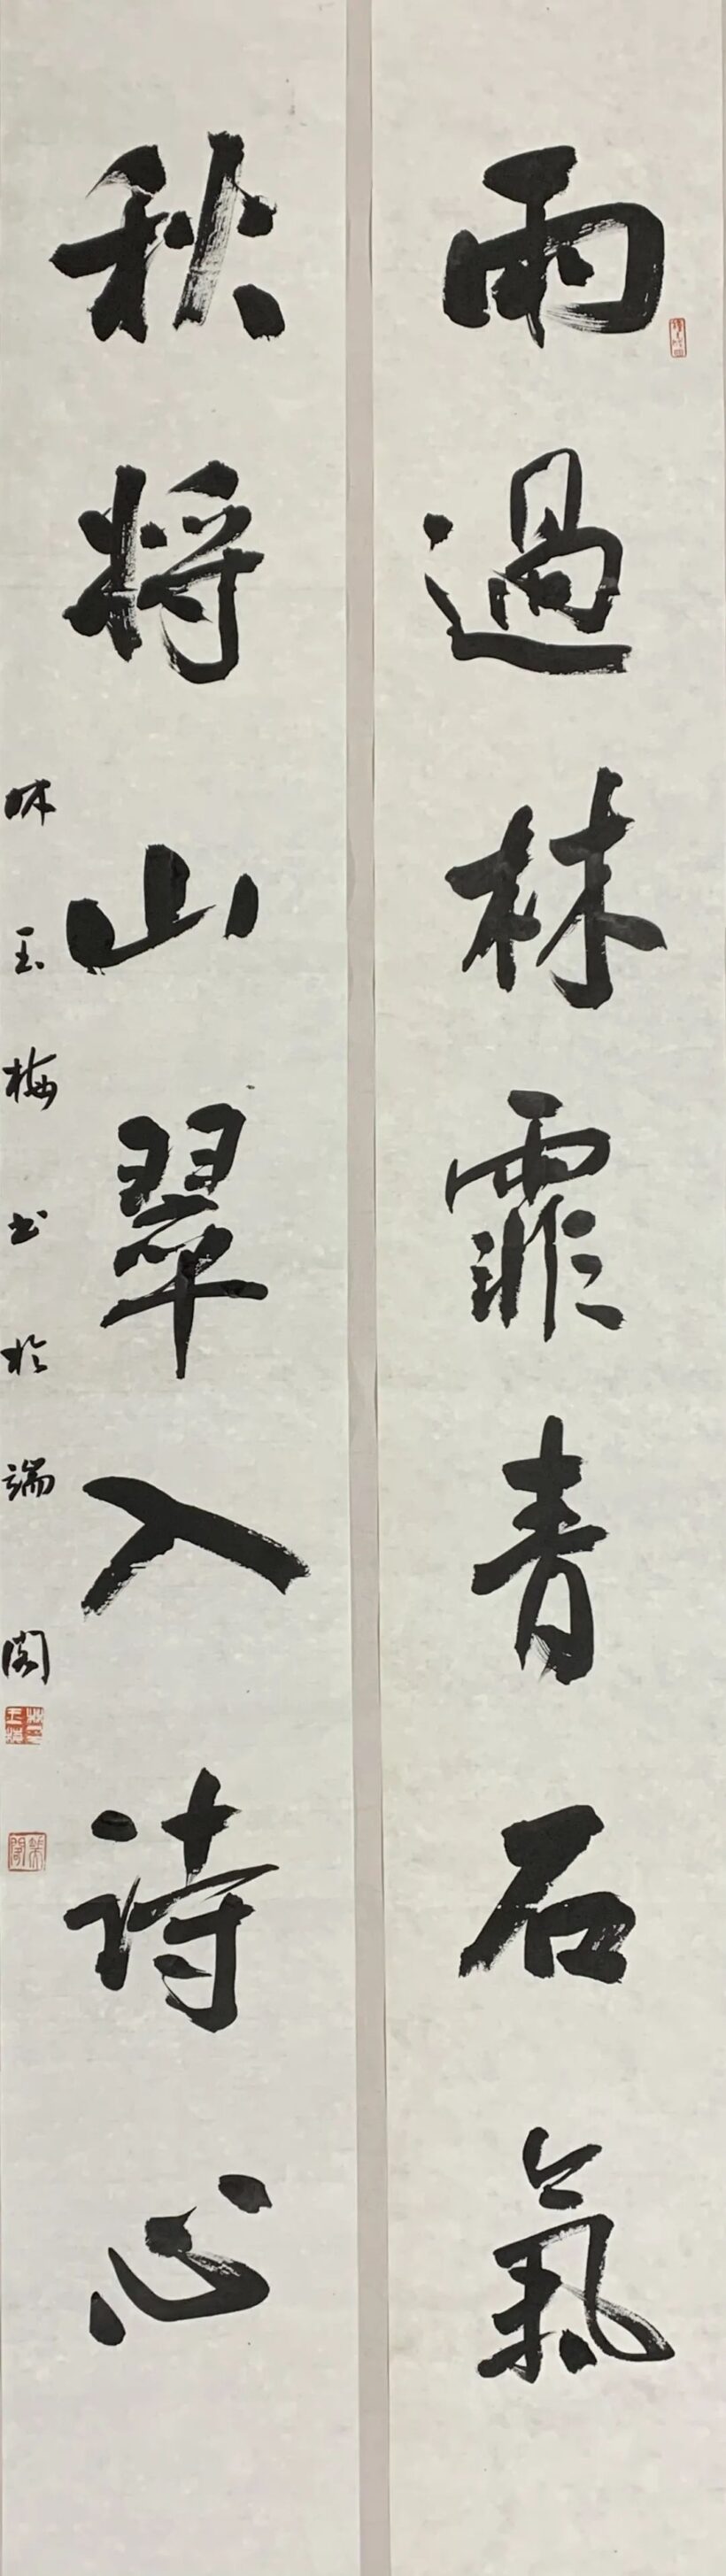 雨過林霏青石氣
秋将山翠入诗心
林玉梅书於端阁